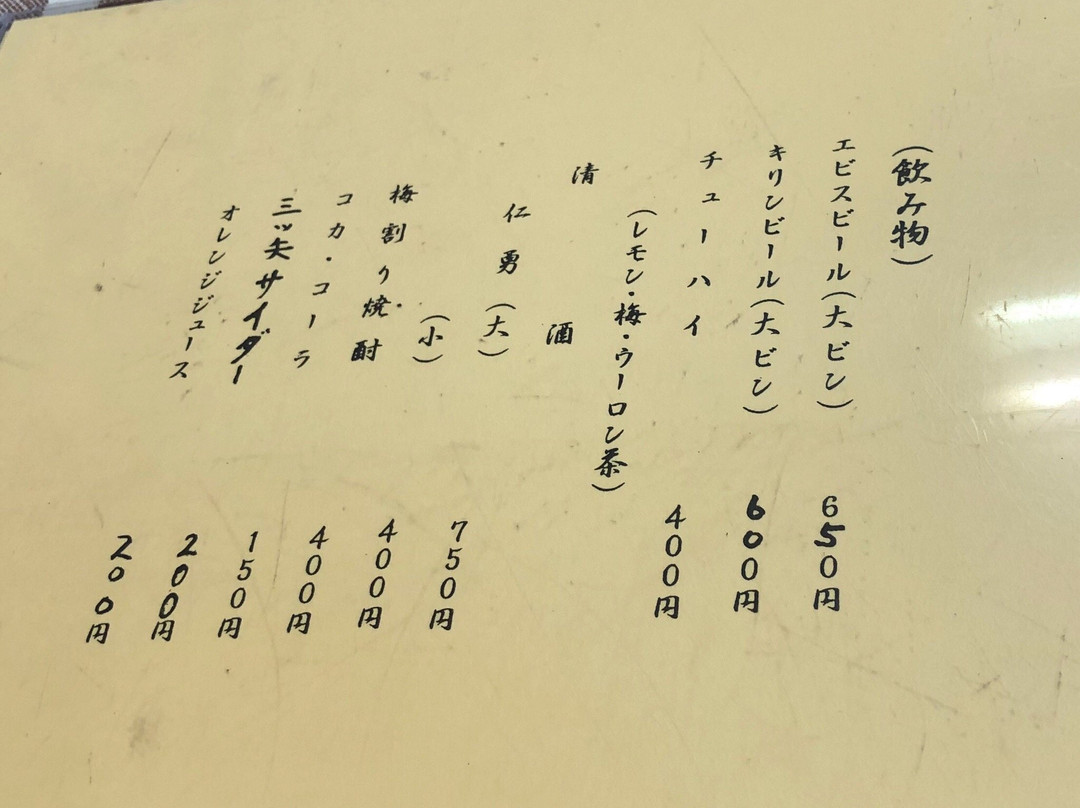 (飲み物)
エビスビール(大ビン) 650円
キリンビール(大ビン) 600円
チューハイ 400円
(レモン・梅・ウーロン茶)
清酒
仁勇(大) 750円
(小) 400円
梅割り焼酎 400円
コカ・コーラ 150円
三ツ矢サイダー 200円
オレンジジュース 200円